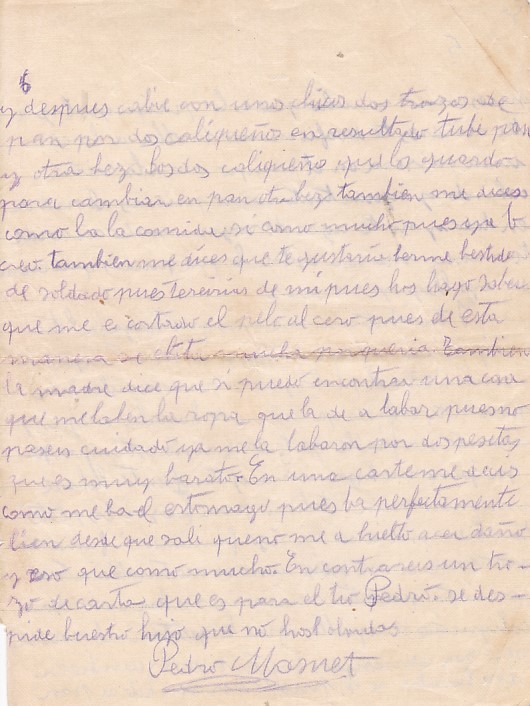 6
y despues cabie con unos chicos dos trozos de
pan por dos caliqueños en resultado tube pan
y otra bez los dos caliqueño que los guardo
para cambiar en pan otra bez. tambien me dices
como ba la comida si como mucho pues ya lo
creo. tambien me dices que te gustaria berme bestido
de soldado pues te reirias de mi pues hos hago saber
que me e cortado el pelo al cero pues de esta
manera se ebita mucha porqueria. Tambien
la madre dice que si puedo encontrar una casa
que me laben la ropa que la de a labar pues no
paseis cuidado ya me la labaron por dos pesetas
que es muy barato. En una carta me decis
como me ba el estomago pues ba perfectamente
bien desde que sali que no me a buelto acer daño
y eso que como mucho. En contrareis un tro-
zo de carta que es para el tio Pedro. se des-
pide buestro hijo que no hos olvida
Pedro Masnet